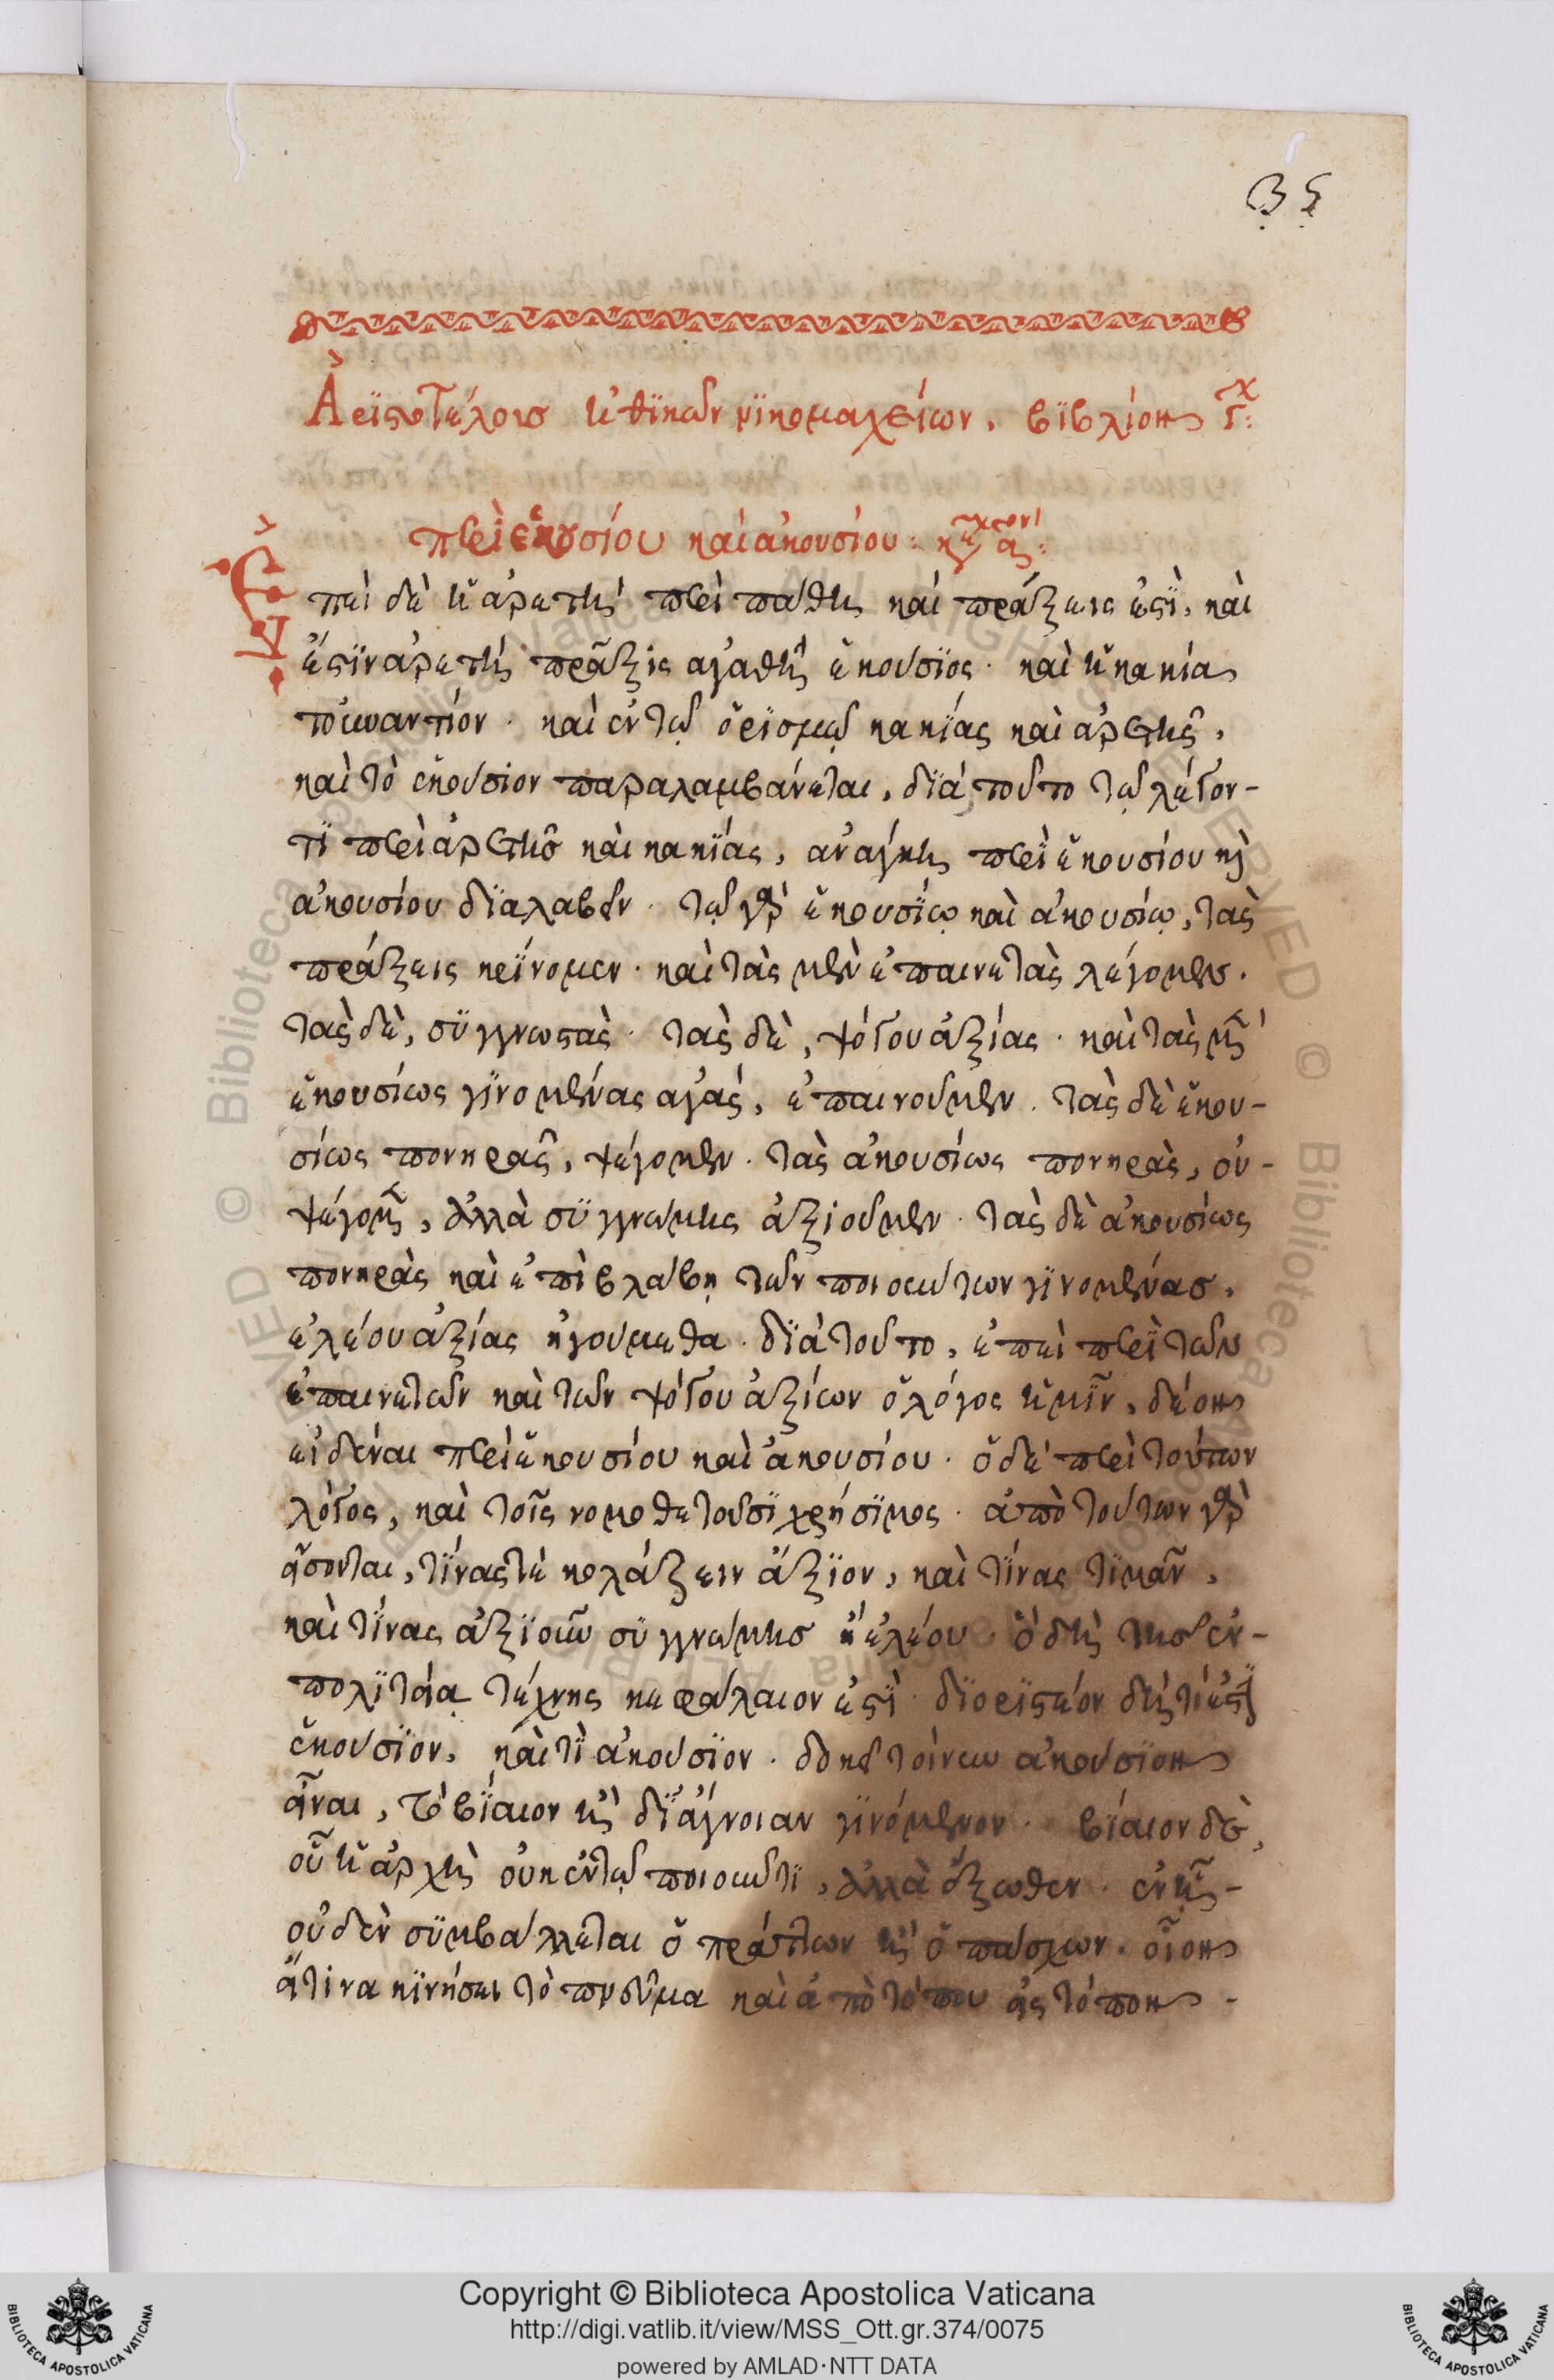 35
Ἀριστοτέλους ἠθικῶν νικομαχείων, βιβλίον γ:
περὶ ἑκουσίου καὶ ἀκουσίου: κεφ αʹ:
Ἐπεὶ δὲ ἡ ἀρετὴ περὶ πάθη καὶ πράξεις ἐστὶ, καὶ
ἔστιν ἀρετὴ πρᾶξις ἀγαθὴ ἑκούσιος· καὶ ἡ κακία
τοὐναντίον· καὶ ἐν τῷ ὁρισμῷ κακίας καὶ ἀρετῆς,
καὶ τὸ ἑκούσιον παραλαμβάνεται, διὰ τοῦτο τῷ λέγον-
τι περὶ ἀρετῆς καὶ κακίας, ἀνάγκη περὶ ἑκουσίου καὶ
ἀκουσίου διαλαβεῖν· τῷ γὰρ ἑκουσίῳ καὶ ἀκουσίῳ, τὰς
πράξεις κρίνομεν· καὶ τὰς μὲν ἐπαινετὰς λέγομεν.
τὰς δὲ, συγγνωστὰς· τὰς δὲ, ψόγου ἀξίας· καὶ τὰς μὲν
ἑκουσίως γινομένας ἀγαθάς, ἐπαινοῦμεν. τὰς δὲ ἑκου-
σίως πονηρὰς, ψέγομεν. τὰς ἀκουσίως πονηρὰς, οὐ-
ψέγομεν, ἀλλὰ συγγνώμης ἀξιοῦμεν· τὰς δὲ ἀκουσίως
πονηρὰς καὶ ἐπὶ βλάβῃ τῶν ποιούντων γινομένας,
ἐλέου ἀξίας ἡγούμεθα· διὰ τοῦτο, ἐπεὶ περὶ τῶν
ἐπαινετῶν καὶ τῶν ψόγου ἀξίων ὁ λόγος ἡμῖν, δέον
εἰδέναι περὶ ἑκουσίου καὶ ἀκουσίου· ὁ δὲ περὶ τούτων
λόγος, καὶ τοῖς νομοθετοῦσι χρήσιμος· ἀπὸ τούτων γὰρ
εἴσονται, τίνας τὲ κολάζειν ἄξιον, καὶ τίνας τιμᾶν,
καὶ τίνας ἀξιοῦν συγγνώμης ἢ ἐλέου· ὃ δὴ τῆς ἐν-
πολιτείᾳ τέχνης κεφάλαιον ἐστὶ· διοριστέον δὴ τί ἐστὶ
ἑκούσιον, καὶ τὶ ἀκούσιον· δοκεῖ τοίνυν ἀκούσιον
εἶναι, τὸ βίαιον ἢ δι' ἄγνοιαν γινόμενον· βίαιον δὲ,
οὗ ἡ ἀρχὴ οὐκ ἐν τῷ ποιοῦντι, ἀλλὰ ἔξωθεν· ἐν ᾗ-
οὐδὲν συμβάλλεται ὁ πράττων ἢ ὁ πάσχων· οἷον
εἴ τινα κινήσει τὸ πνεῦμα καὶ ἀπὸ τόπου εἰς τόπον -
Copyright © Biblioteca Apostolica Vaticana
http://digi.vatlib.it/view/MSS_Ott.gr.374/0075
powered by AMLAD·NTT DATA